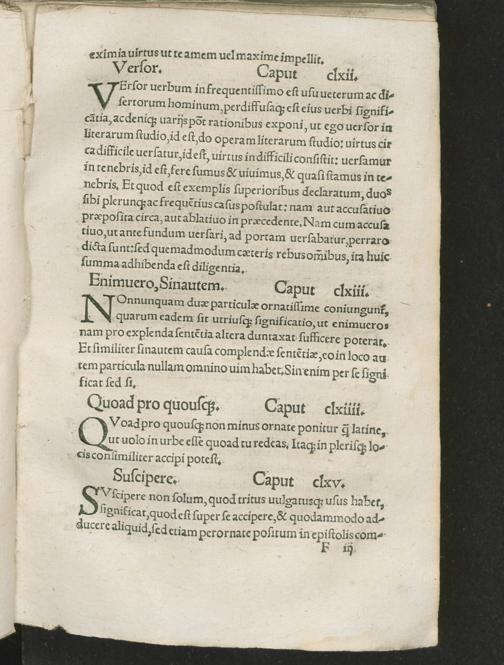 eximia virtus ut te amem uel maxime impellit.
Versor. Caput clxii.
VErsor verbum in frequentissimo est usu ueterum ac di-
sertorum hominum, perdiffusaq; est eius verbi signifi-
cãtia, ac deniq; uarijs põt rationibus exponi, ut ego versor in
literarum studio, id est, do operam literarum studio: uirtus cir
ca difficile uersatur, id est, uirtus in difficili consistit: uersamur
in tenebris, id est, fere sumus & uiuimus, & quasi stamus in te-
nebris. Et quod est exemplis superioribus declaratum, duos
sibi plerunq; ac frequẽtius casus postulat: nam aut accusatiuo
præposita circa, aut ablatiuo in præcedente. Nam cum accusa
tiuo, ut ante fundum uersari, ad portam uersabatur, perraro
dicta sunt: sed quemadmodum cæteris rebus om̃ibus, ita huic
summa adhibenda est diligentia.
Enimuero, Sinautem. Caput clxiii.
NOnnunquam duæ particulæ ornatissime coniungunt̃,
quarum eadem sit utriusq; significatio, ut enimuero:
nam pro explenda sentẽtia altera duntaxat sufficere poterat.
Et similiter sinautem causa complendæ sentẽtiæ, eo in loco au
tem particula nullam omnino uim habet. Sin enim per se signi
ficat sed si.
Quoad pro quousq;. Caput clxiiii.
QVoad pro quousq; non minus ornate ponitur q̃ latine,
ut uolo in urbe esse quoad tu redeas. Itaq; in plerisq; lo-
cis consimiliter accipi potest.
Suscipere. Caput clxv.
SVscipere non solum, quod tritus uulgatusq; usus habet,
significat, quod est super se accipere, & quodammodo ad-
ducere aliquid, sed etiam perornate positum in epistolis com-
F iij